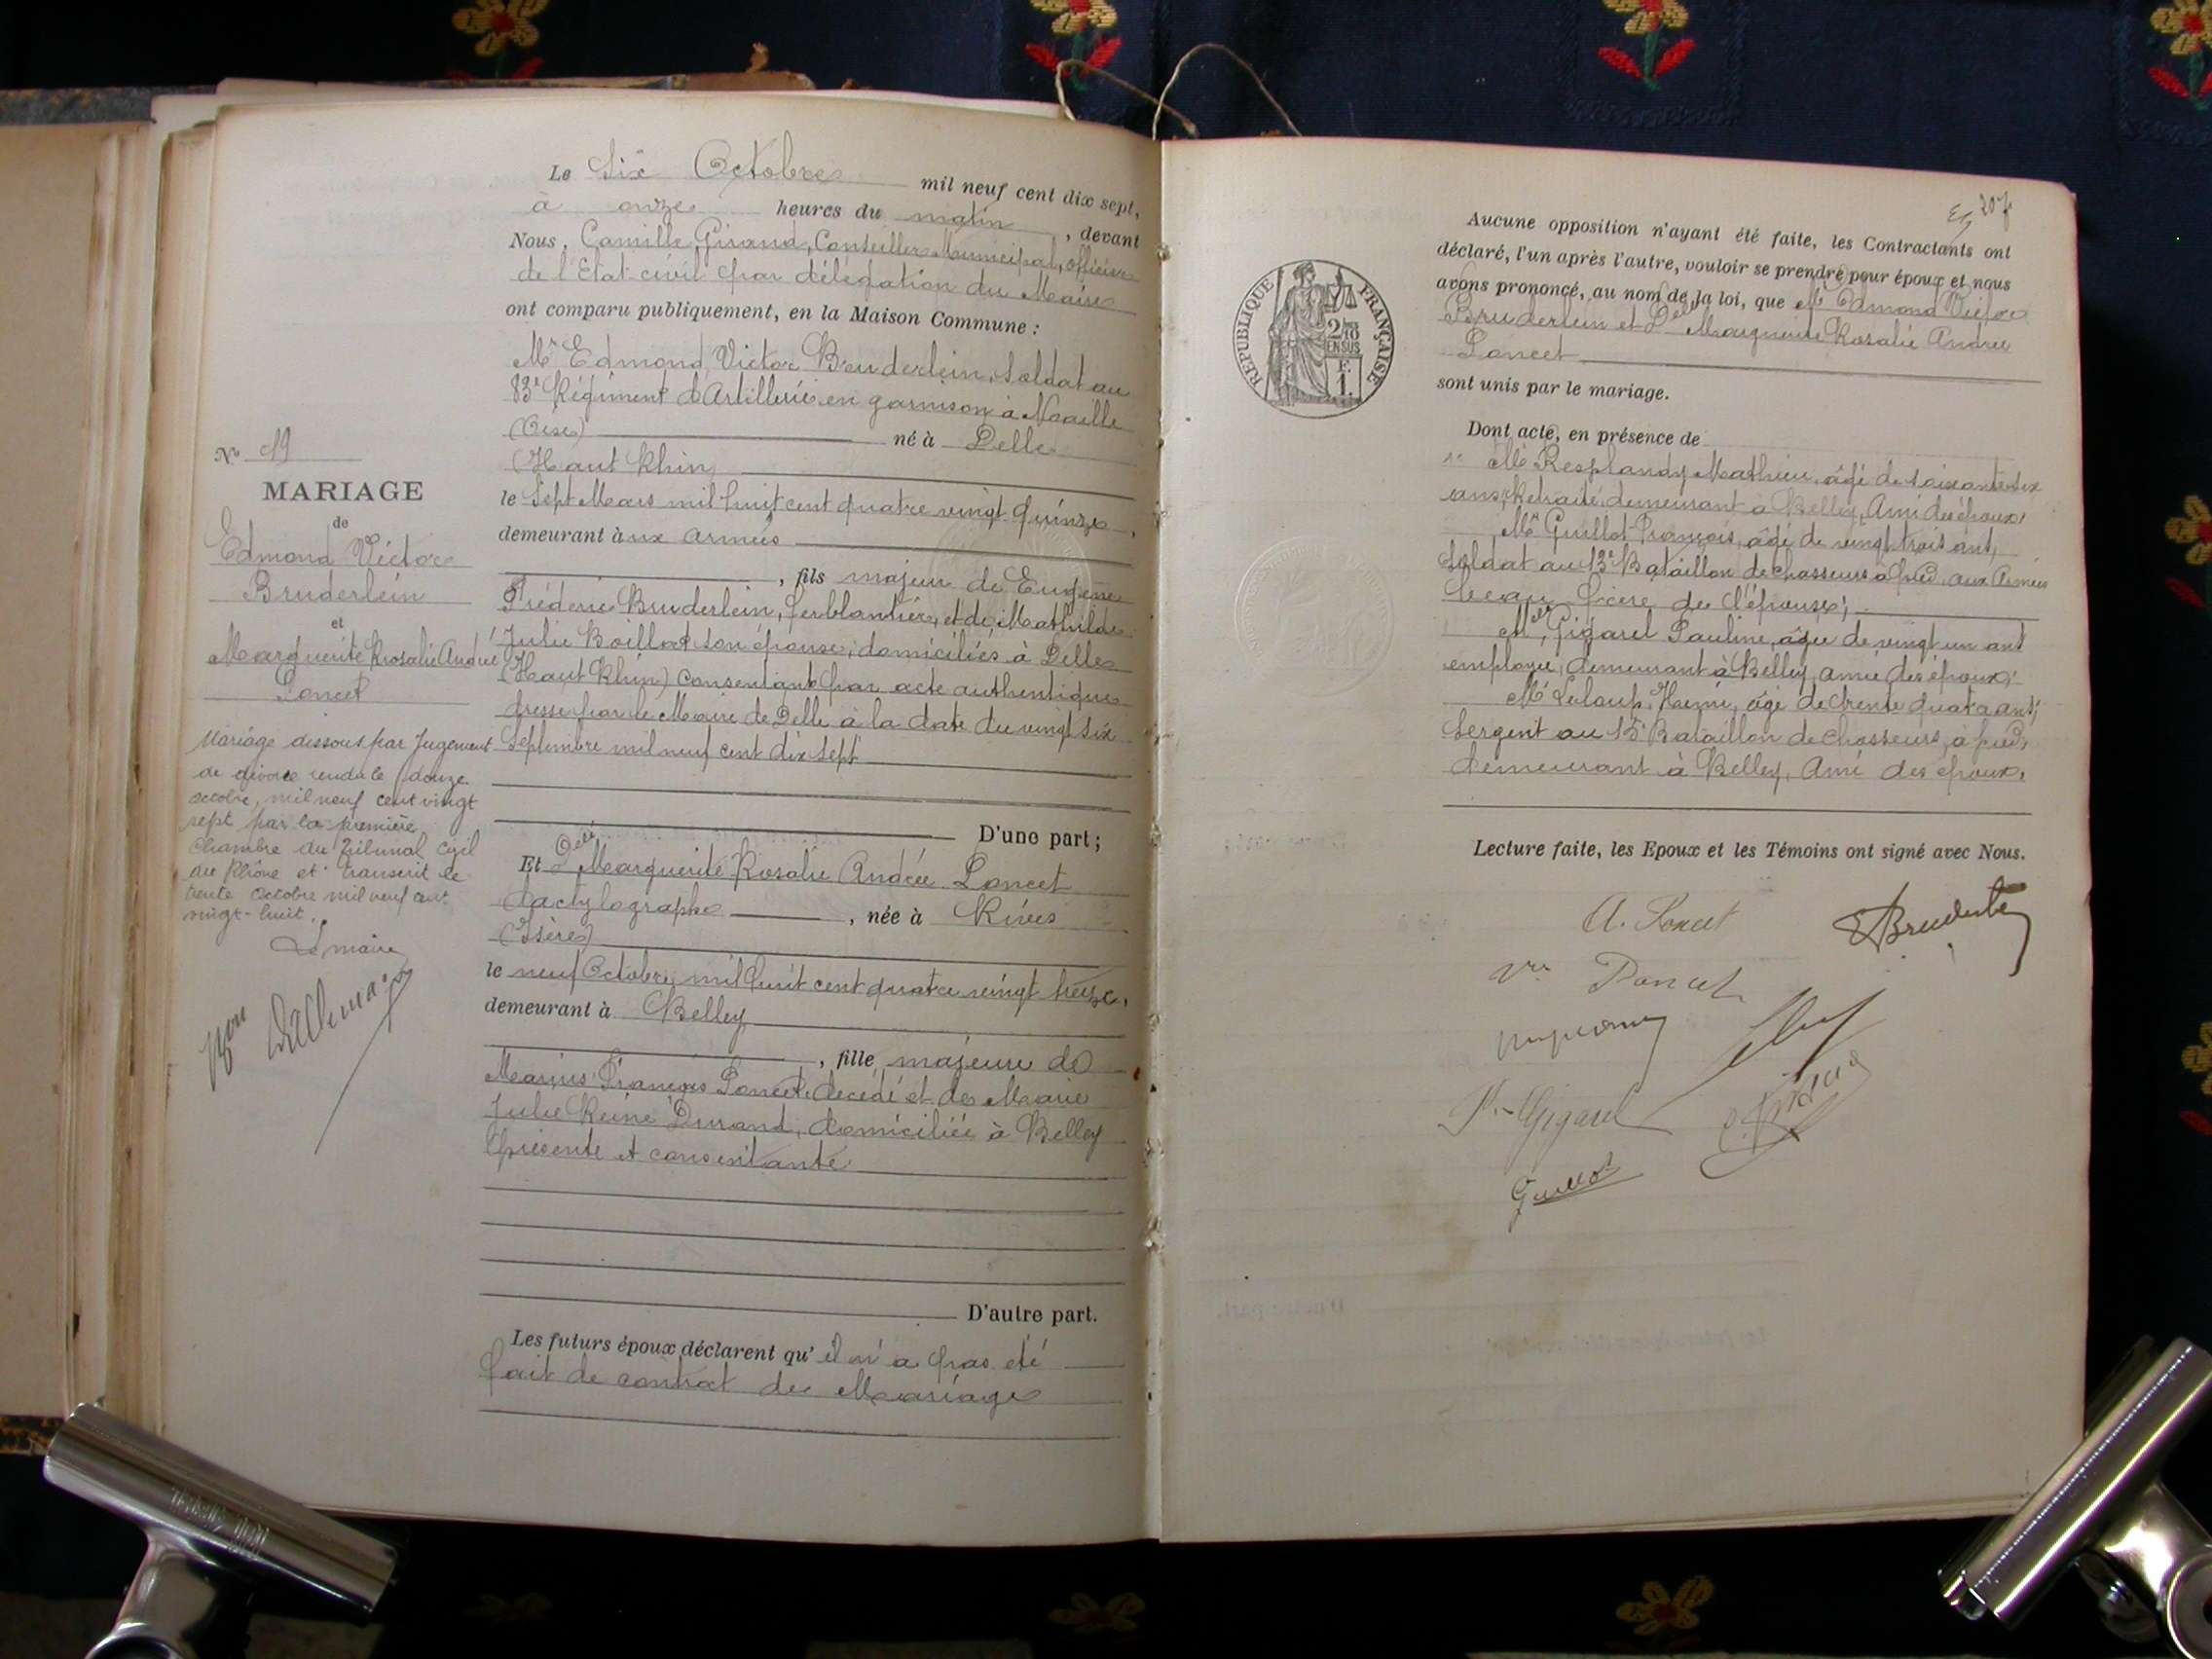 Le Six Octobre mil neuf cent dix sept,
à onze heures du matin, devant
Nous, Camille Giraud, Conseiller Municipal, officier
de l'Etat civil par délégation du Maire
ont comparu publiquement, en la Maison Commune :
Mr Edmond Victor Bruderlein, Soldat au
83e Régiment d'Artillerie en garnison à Noailles
(Oise) né à Delle
(Haut Rhin)
le Sept Mars mil huit cent quatre vingt quinze,
demeurant aux armées
, fils majeur de Eugène
Fréderic Bruderlein, ferblantier, et de Mathilde
Julie Boillat son épouse, domiciliés à Delle
(Haut Rhin) consentant par acte authentique
dressé par le Maire de Delle à la date du vingt six
Septembre mil neuf cent dix sept
D'une part ;
Et Delle Marguerite Rosalie Andrée Poncet
dactylographe, née à Rives
(Isère)
le neuf Octobre mil huit cent quatre vingt treize,
demeurant à Belley
, fille majeure de
Marius François Poncet décédé et de Marie
Julie Reine Durand, domiciliée à Belley
présente et consentante
D'autre part.
Les futurs époux déclarent qu'il n'a pas été
fait de contrat de Mariage
No 19
MARIAGE
de
Edmond Victor
Bruderlein
et
Marguerite Rosalie Andrée
Poncet
Mariage dissous par Jugement
de divorce rendu le douze
octobre, mil neuf cent vingt
sept par la première
Chambre du Tribunal Civil
du Rhône et transcrit le
trente octobre mil neuf cent
vingt-huit.
Le maire
207
REPUBLIQUE FRANÇAISE
2/10
EN SUS
F.
1.
Aucune opposition n'ayant été faite, les Contractants ont
déclaré, l'un après l'autre, vouloir se prendre pour époux et nous
avons prononcé, au nom de la loi, que Mr Edmond Victor
Bruderlein et Delle Marguerite Rosalie Andrée
Poncet
sont unis par le mariage.
Dont acte, en présence de
Mr Resplandy Mathieu, âgé de soixante six
ans, Retraité, demeurant à Belley, Ami des époux,
Mr Guillot François, âgé de vingt trois ans,
Soldat au 13e Bataillon de chasseurs à pied aux Armées
beau frère de l'épouse,
Melle Gigarel Pauline, âgée de vingt un ans
employée, demeurant à Belley, amie des époux,
Mr Leloup, âgé de trente quatre ans,
Sergent au 15e Bataillon de chasseurs à pied,
demeurant à Belley, Ami des époux,
Lecture faite, les Epoux et les Témoins ont signé avec Nous.
A. Poncet
Bruderlein
Vve Poncet
P. Gigarel
Guillot